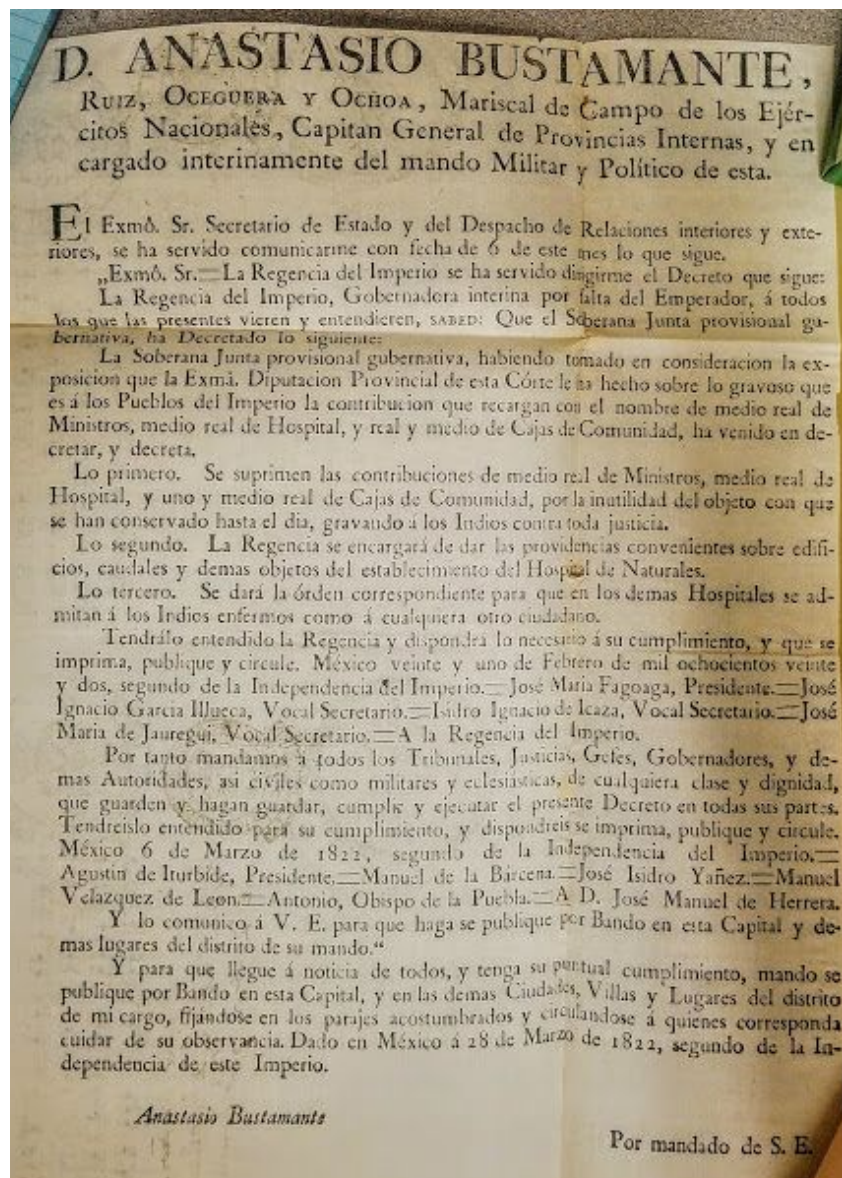 D. ANASTASIO BUSTAMANTE,
RUIZ, OCEGUERA Y OCHOA, Mariscal de Campo de los Ejér-
citos Nacionales, Capitan General de Provincias Internas, y en
cargado interinamente del mando Militar y Político de esta.
El Exmô. Sr. Secretario de Estado y del Despacho de Relaciones interiores y exte-
riores, se ha servido comunicarme con fecha de 6 de este mes lo que sigue.
„Exmô. Sr.=La Regencia del Imperio se ha servido dirigirme el Decreto que sigue:
La Regencia del Imperio, Gobernadora interina por falta del Emperador, á todos
los que las presentes vieren y entendieren, SABED: Que el Soberana Junta provisional gu-
bernativa, ha Decretado lo siguiente:
La Soberana Junta provisional gubernativa, habiendo tomado en consideracion la ex-
posicion que la Exmâ. Diputacion Provincial de esta Córte le ha hecho sobre lo gravoso que
es á los Pueblos del Imperio la contribucion que recargan con el nombre de medio real de
Ministros, medio real de Hospital, y real y medio de Cajas de Comunidad, ha venido en de-
cretar, y decreta.
Lo primero. Se suprimen las contribuciones de medio real de Ministros, medio real de
Hospital, y uno y medio real de Cajas de Comunidad, por la inutilidad del objeto con que
se han conservado hasta el dia, gravando á los Indios contra toda justicia.
Lo segundo. La Regencia se encargará de dar las providencias convenientes sobre edifi-
cios, caudales y demas objetos del establecimiento del Hospital de Naturales.
Lo tercero. Se dará la órden correspondiente para que en los demas Hospitales se ad-
mitan á los Indios enfermos como á cualquiera otro ciudadano.
Tendrálo entendido la Regencia y dispondrá lo necesario á su cumplimiento, y que se
imprima, publique y circule. México veinte y uno de Febrero de mil ochocientos veinte
y dos, segundo de la Independencia del Imperio.=José Maria Fagoaga, Presidente.=José
Ignacio Garcia Illueca, Vocal Secretario.=Isidro Ignacio de Icaza, Vocal Secretario.=José
Maria de Jauregui, Vocal Secretario.=A la Regencia del Imperio.
Por tanto mandamos á todos los Tribunales, Justicias, Gefes, Gobernadores, y de-
mas Autoridades, asi civiles como militares y eclesiásticas, de cualquiera clase y dignidad,
que guarden y hagan guardar, cumplir y ejecutar el presente Decreto en todas sus partes.
Tendreislo entendido para su cumplimiento, y dispondreis se imprima, publique y circule.
México 6 de Marzo de 1822, segundo de la Independencia del Imperio.=
Agustin de Iturbide, Presidente.=Manuel de la Bárcena.=José Isidro Yañez.=Manuel
Velazquez de Leon.=Antonio, Obispo de la Puebla.=A D. José Manuel de Herrera.
Y lo comunico á V. E. para que haga se publique por Bando en esta Capital y de-
mas lugares del distrito de su mando.“
Y para que llegue á noticia de todos, y tenga su puntual cumplimiento, mando se
publique por Bando en esta Capital, y en las demas Ciudades, Villas y Lugares del distrito
de mi cargo, fijándose en los parajes acostumbrados y circulandose á quienes corresponda
cuidar de su observancia. Dado en México á 28 de Marzo de 1822, segundo de la In-
dependencia de este Imperio.
Anastasio Bustamante
Por mandado de S. E.